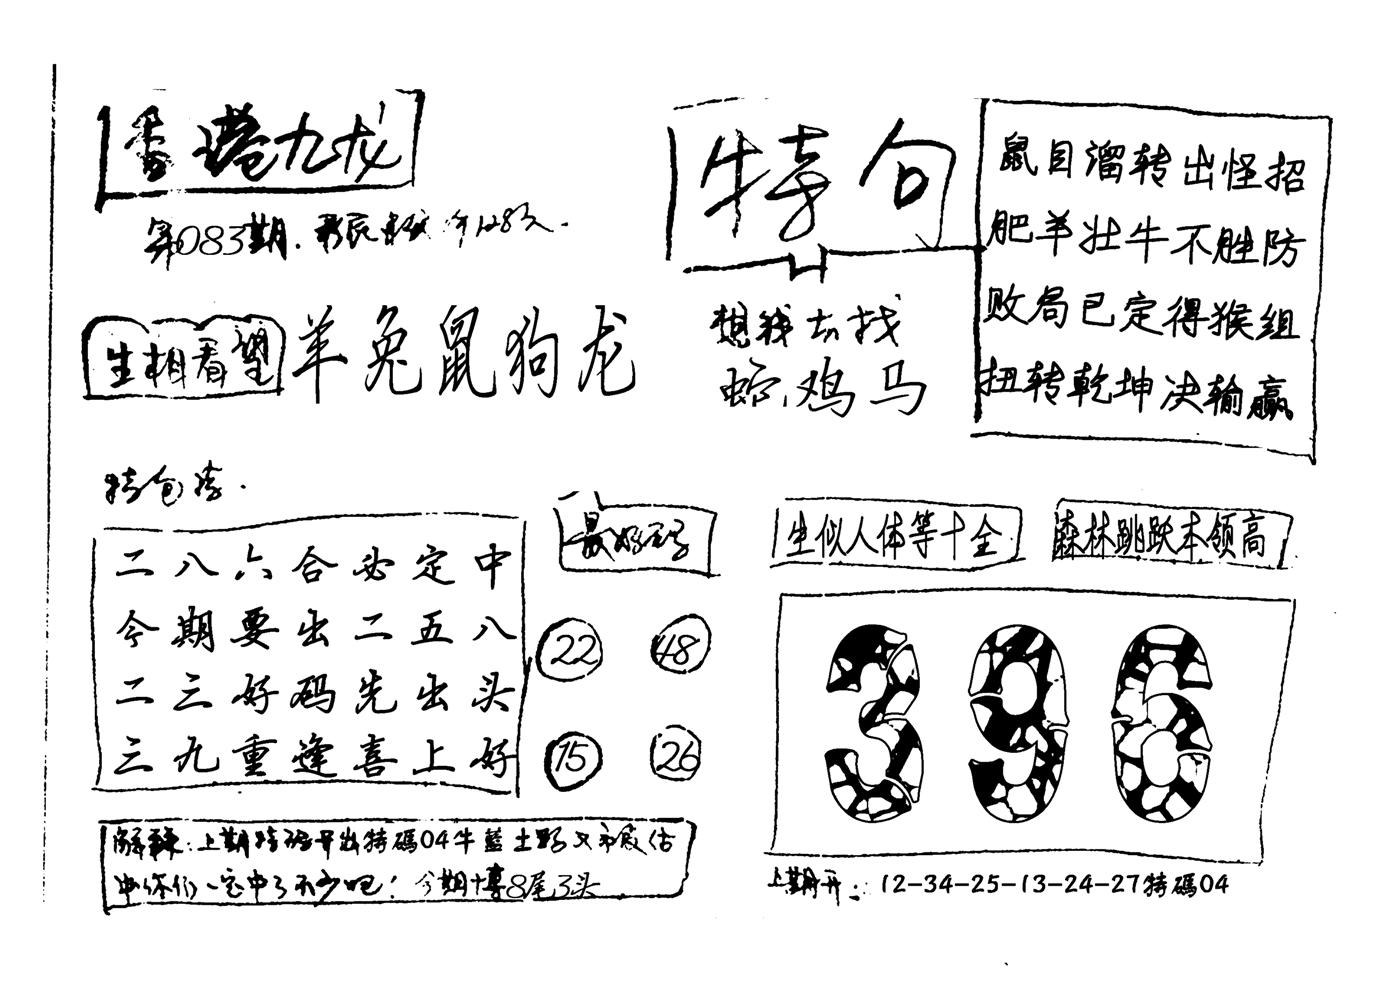 香港九龙
第083期.
特句
鼠目溜转出怪招
肥羊壮牛不胜防
败局已定得猴组
扭转乾坤决输赢
生相看望
羊兔鼠狗龙
想钱去找
蛇鸡马
二八六合必定中
今期要出二五八
二三好码先出头
三九重逢喜上好
22 48
15 26
生似人体等十全
森林跳跃本领高
396
解释:上期特码开出特碼04牛藍土野又
中你们一定中了不少吧! 今期博8尾3头
上期开: 12-34-25-13-24-27特碼04